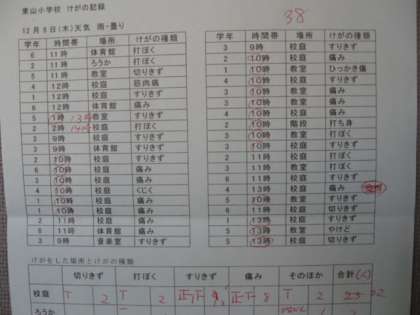 東山小学校 けがの記録
38
12月8日(木)天気 雨・曇り
学年 時間帯 場所 けがの種類
6 11時 体育館 打ぼく
2 11時 ろうか 打ぼく
5 11時 教室 切りきず
4 12時 校庭 筋肉痛
1 12時 校庭 すりきず
6 12時 体育館 痛み
5 1時 13時 教室 すりきず
2 2時 14時 校庭 打ぼく
3 9時 校庭 すりきず
3 9時 体育館 すりきず
2 10時 校庭 すりきず
6 10時 校庭 痛み
3 10時 校庭 痛み
4 10時 校庭 くじく
1 10時 校庭 すりきず
1 10時 校庭 痛み
2 11時 校庭 すりきず
5 11時 体育館 痛み
3 9時 音楽室 すりきず
学年 時間帯 場所 けがの種類
3 9時 校庭 すりきず
2 10時 校庭 痛み
1 10時 教室 ひっかき傷
5 10時 校庭 すりきず
4 10時 校庭 痛み
2 10時 階段 打ち身
1 10時 教室 打ぼく
3 10時 校庭 打ぼく
3 11時 校庭 打ぼく
1 11時 校庭 すりきず
4 13時 校庭 痛み
5 10時 教室 すりきず
6 11時 校庭 切りきず
1 13時 校庭 すりきず
5 13時 教室 やけど
6 13時 校庭 切りきず
2 13時 校庭 すりきず
けがをした場所とけがの種類
切りきず 打ぼく すりきず 痛み そのほか 合計(人)
校庭 T 2 T 2 正正 正T 8 T 2
ろうか